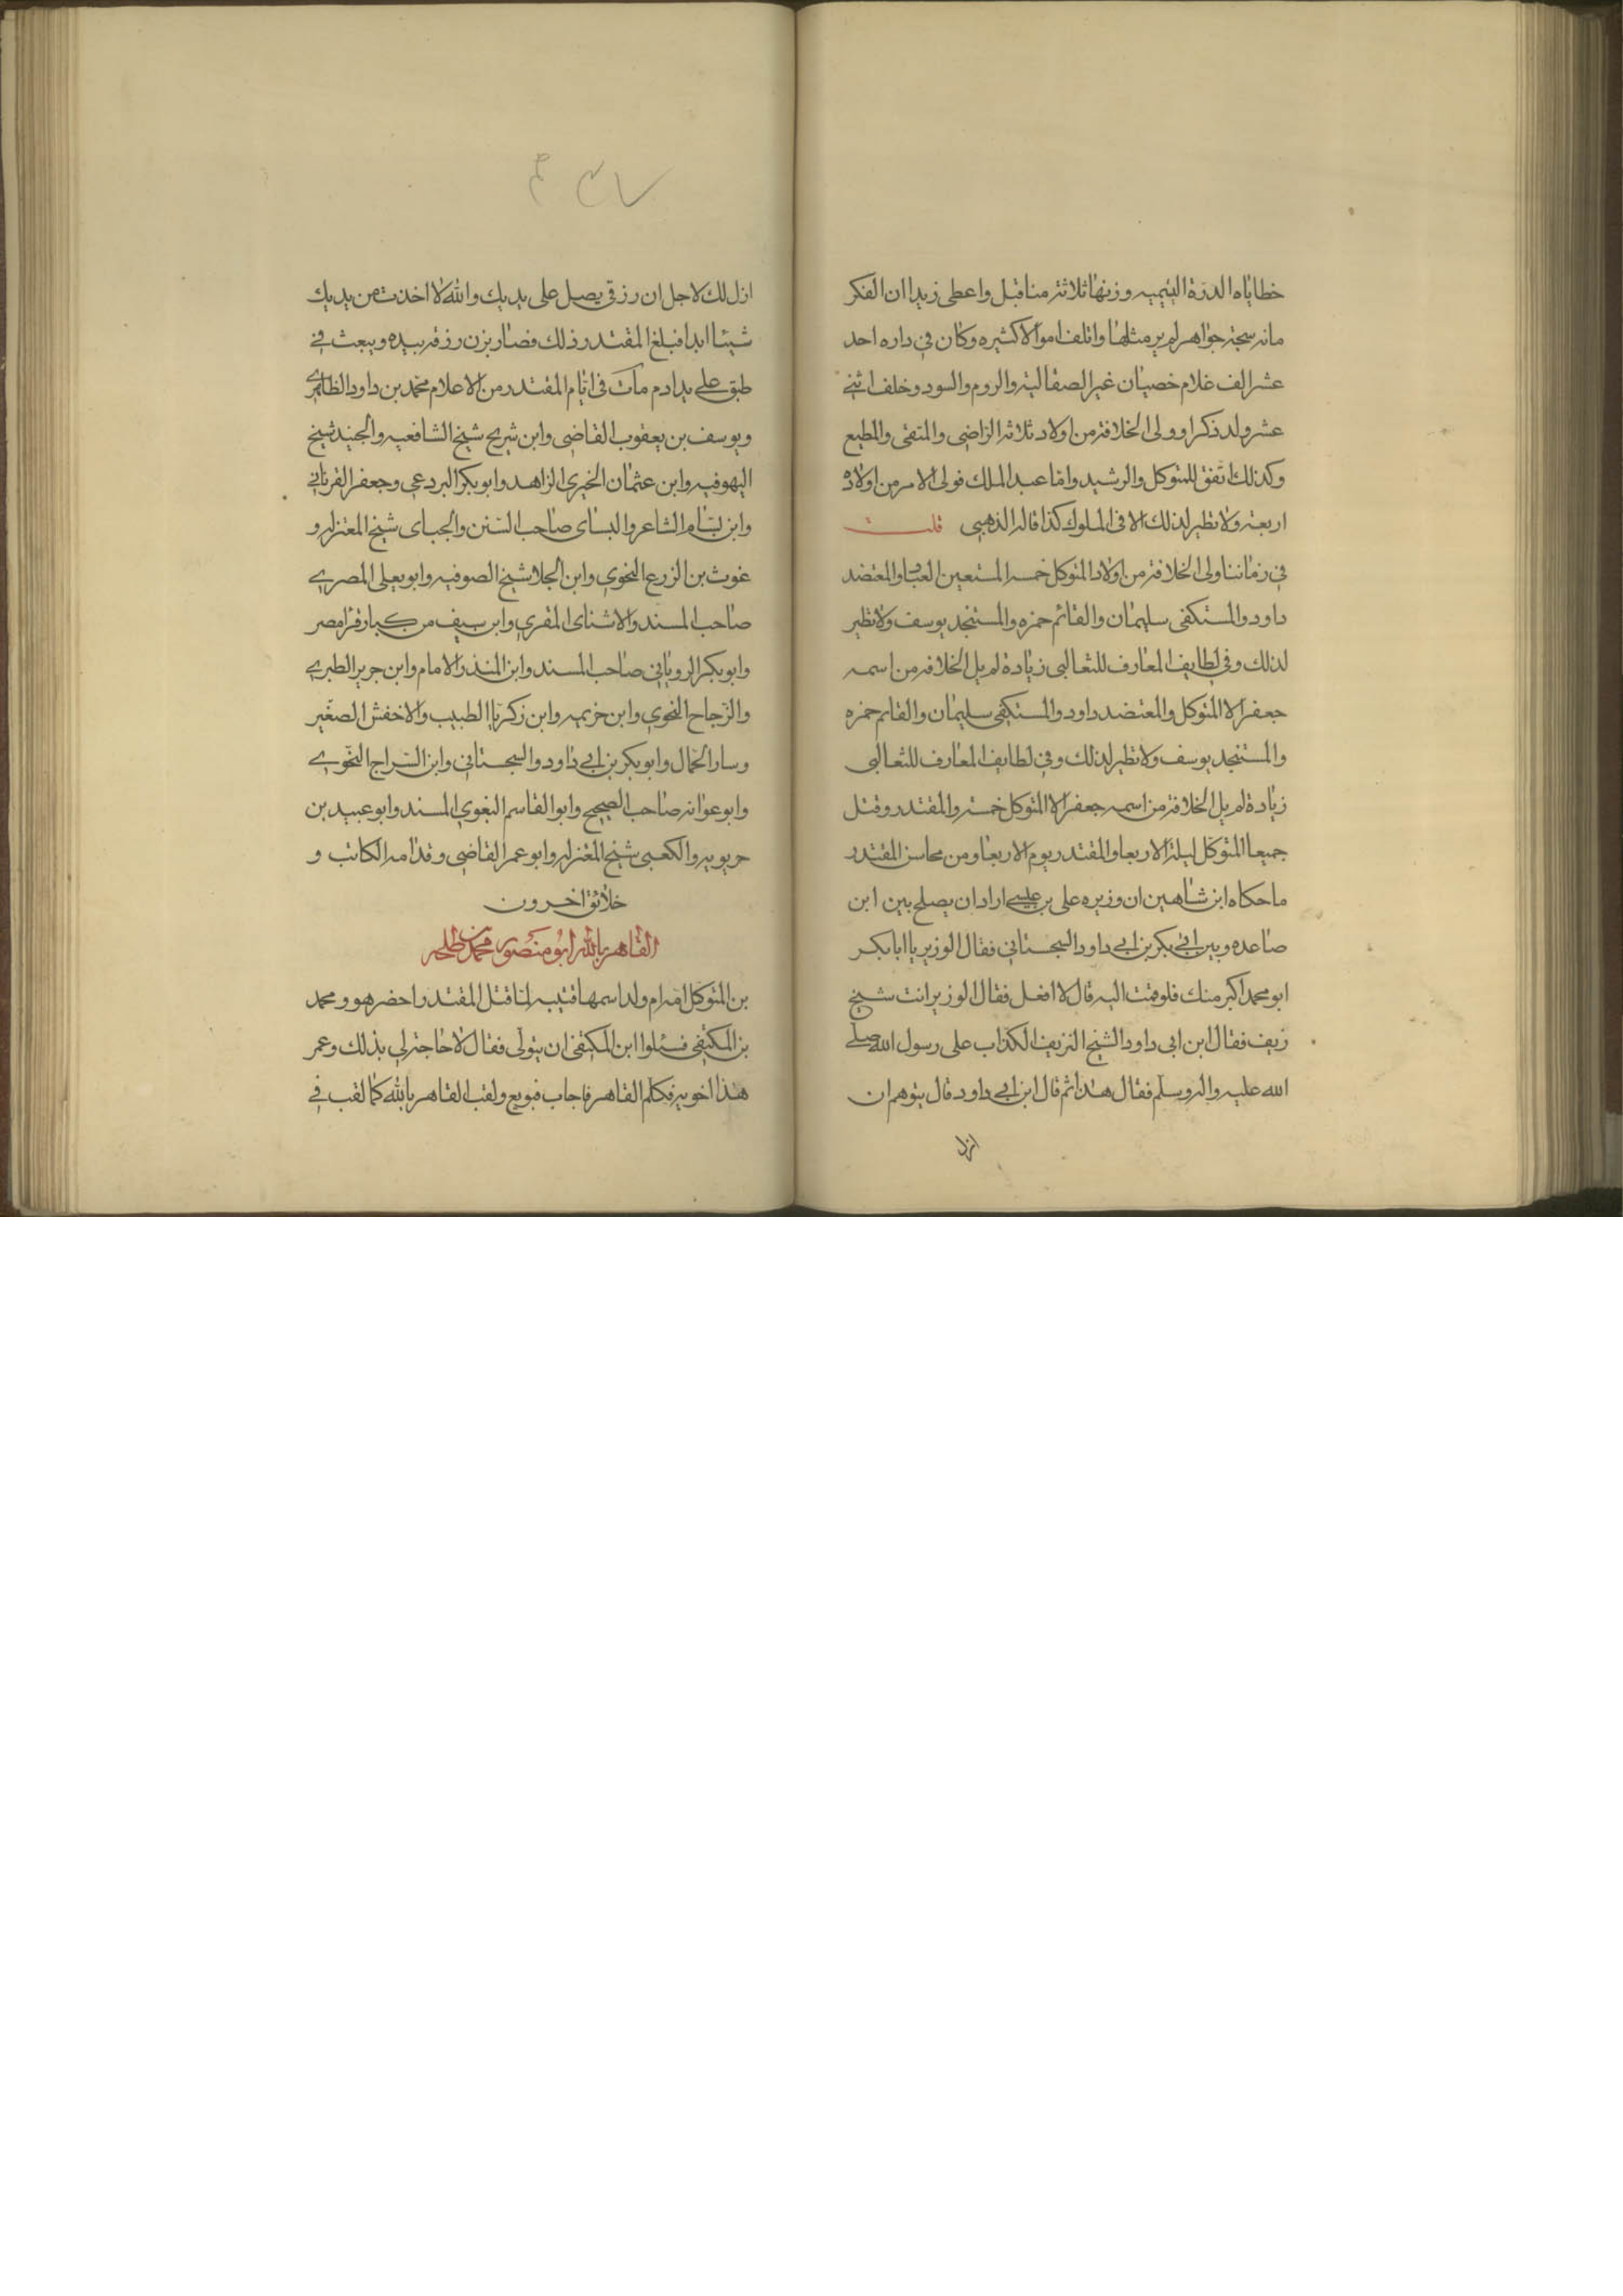 خطاياه الدرة اليتيمه وزنها ثلاثة مناقيل واعطى زيدان الفكر
مانه سجة جواهر لم ير مثلها واتلف اموالا كثيره وكان في داره احد
عشر الف غلام خصيان غير الصقالبة والروم والسود وخلف اثنى
عشر ولد ذكرا وولى الخلافة من اولاد ثلاثة الراضى والمتقى والمطيع
وكذلك اتفق للمتوكل والرشيد واما عبد الملك فولى الامر من اولاده
اربعة ولا نظير لذلك الا فى الملوك كذا قاله الذهبى قلت
في زماننا ولى الخلافة من اولاد المتوكل خمسه المستعين العباس والمعتضد
داود والمستكفى سليمان والقائم حمزه والمستنجد يوسف ولا نظير
لذلك وفي لطايف المعارف للثعالبى زيادة لم يل الخلافة من اسمه
جعفر الا المتوكل والمعتضد داود والمستكفى سليمان والقائم حمزه
والمستنجد يوسف ولا نظير لذلك وفي لطايف المعارف للثعالبى
زيادة لم يل الخلافة من اسمه جعفر الا المتوكل خمسة والمقتدر وقتل
جميعا المتوكل ليلة الاربعا والمقتدر يوم الاربعا ومن محاسن المقتدر
ما حكاه ابن شاهين ان وزيره على بن عيسى اراد ان يصلح بين ابن
صاعده وبين ابى بكر بن ابى داود السجستاني فقال الوزير يا ابا بكر
ابو محمد اكبر منك فلو قمت اليه قال لا افعل فقال الوزير انت شيخ
زيف فقال ابن ابى داود الشيخ الزيف الكذاب على رسول الله صلى
الله عليه واله وسلم فقال هذا ثم قال ابن ابى داود قال يتوهم ان
ازل
ازل لك لاجل ان رزقى يصل على يديك والله لا اخذت من يديك
شيئا ابدا فبلغ المقتدر ذلك فصار يزن رزقه بيده ويبعث في
طبق على يد ادم مات فى ايام المقتدر من الاعلام محمد بن داود الظاهرى
ويوسف بن يعقوب القاضى وابن شريح شيخ الشافعيه والجنيد شيخ
اليهوفيه وابن عثمان الخيرى الزاهد وابو بكر البردعى وجعفر القرنانى
وابن بسام الشاعر والنساى صاحب السنن والجباى شيخ المعتزله و
غوث بن الزرع النحوى وابن الجلا شيخ الصوفيه وابو يعلى المصرى
صاحب المسند والاشناى المقرى وابن سيف من كبار قرا مصر
وابو بكر الرويانى صاحب المسند وابن المنذر الامام وابن جرير الطبرى
والزجاج النحوى وابن خزيمه وابن زكريا الطبيب والاخفش الصغير
وسار الحمال وابو بكر بن ابى داود والسجستانى وابن السراج النحوى
وابو عوانه صاحب الصحيح وابو القاسم البغوى المسند وابو عبيد بن
حربويه والكعبى شيخ المعتزله وابو عمر القاضى وقدامه الكاتب و
خلائق اخرون
القاهر بالله ابو منصور محمد بن طلحه
بن المتوكل امه ام ولد اسمها قتيبه لما قتل المقتدر احضر هو ومحمد
بن المكتفى فسئلوا ابن المكتفى ان يتولى فقال لا حاجة لى بذلك وعمر
هذا اخويه فكلم القاهر فاجاب فبويع ولقب القاهر بالله كما لقب في